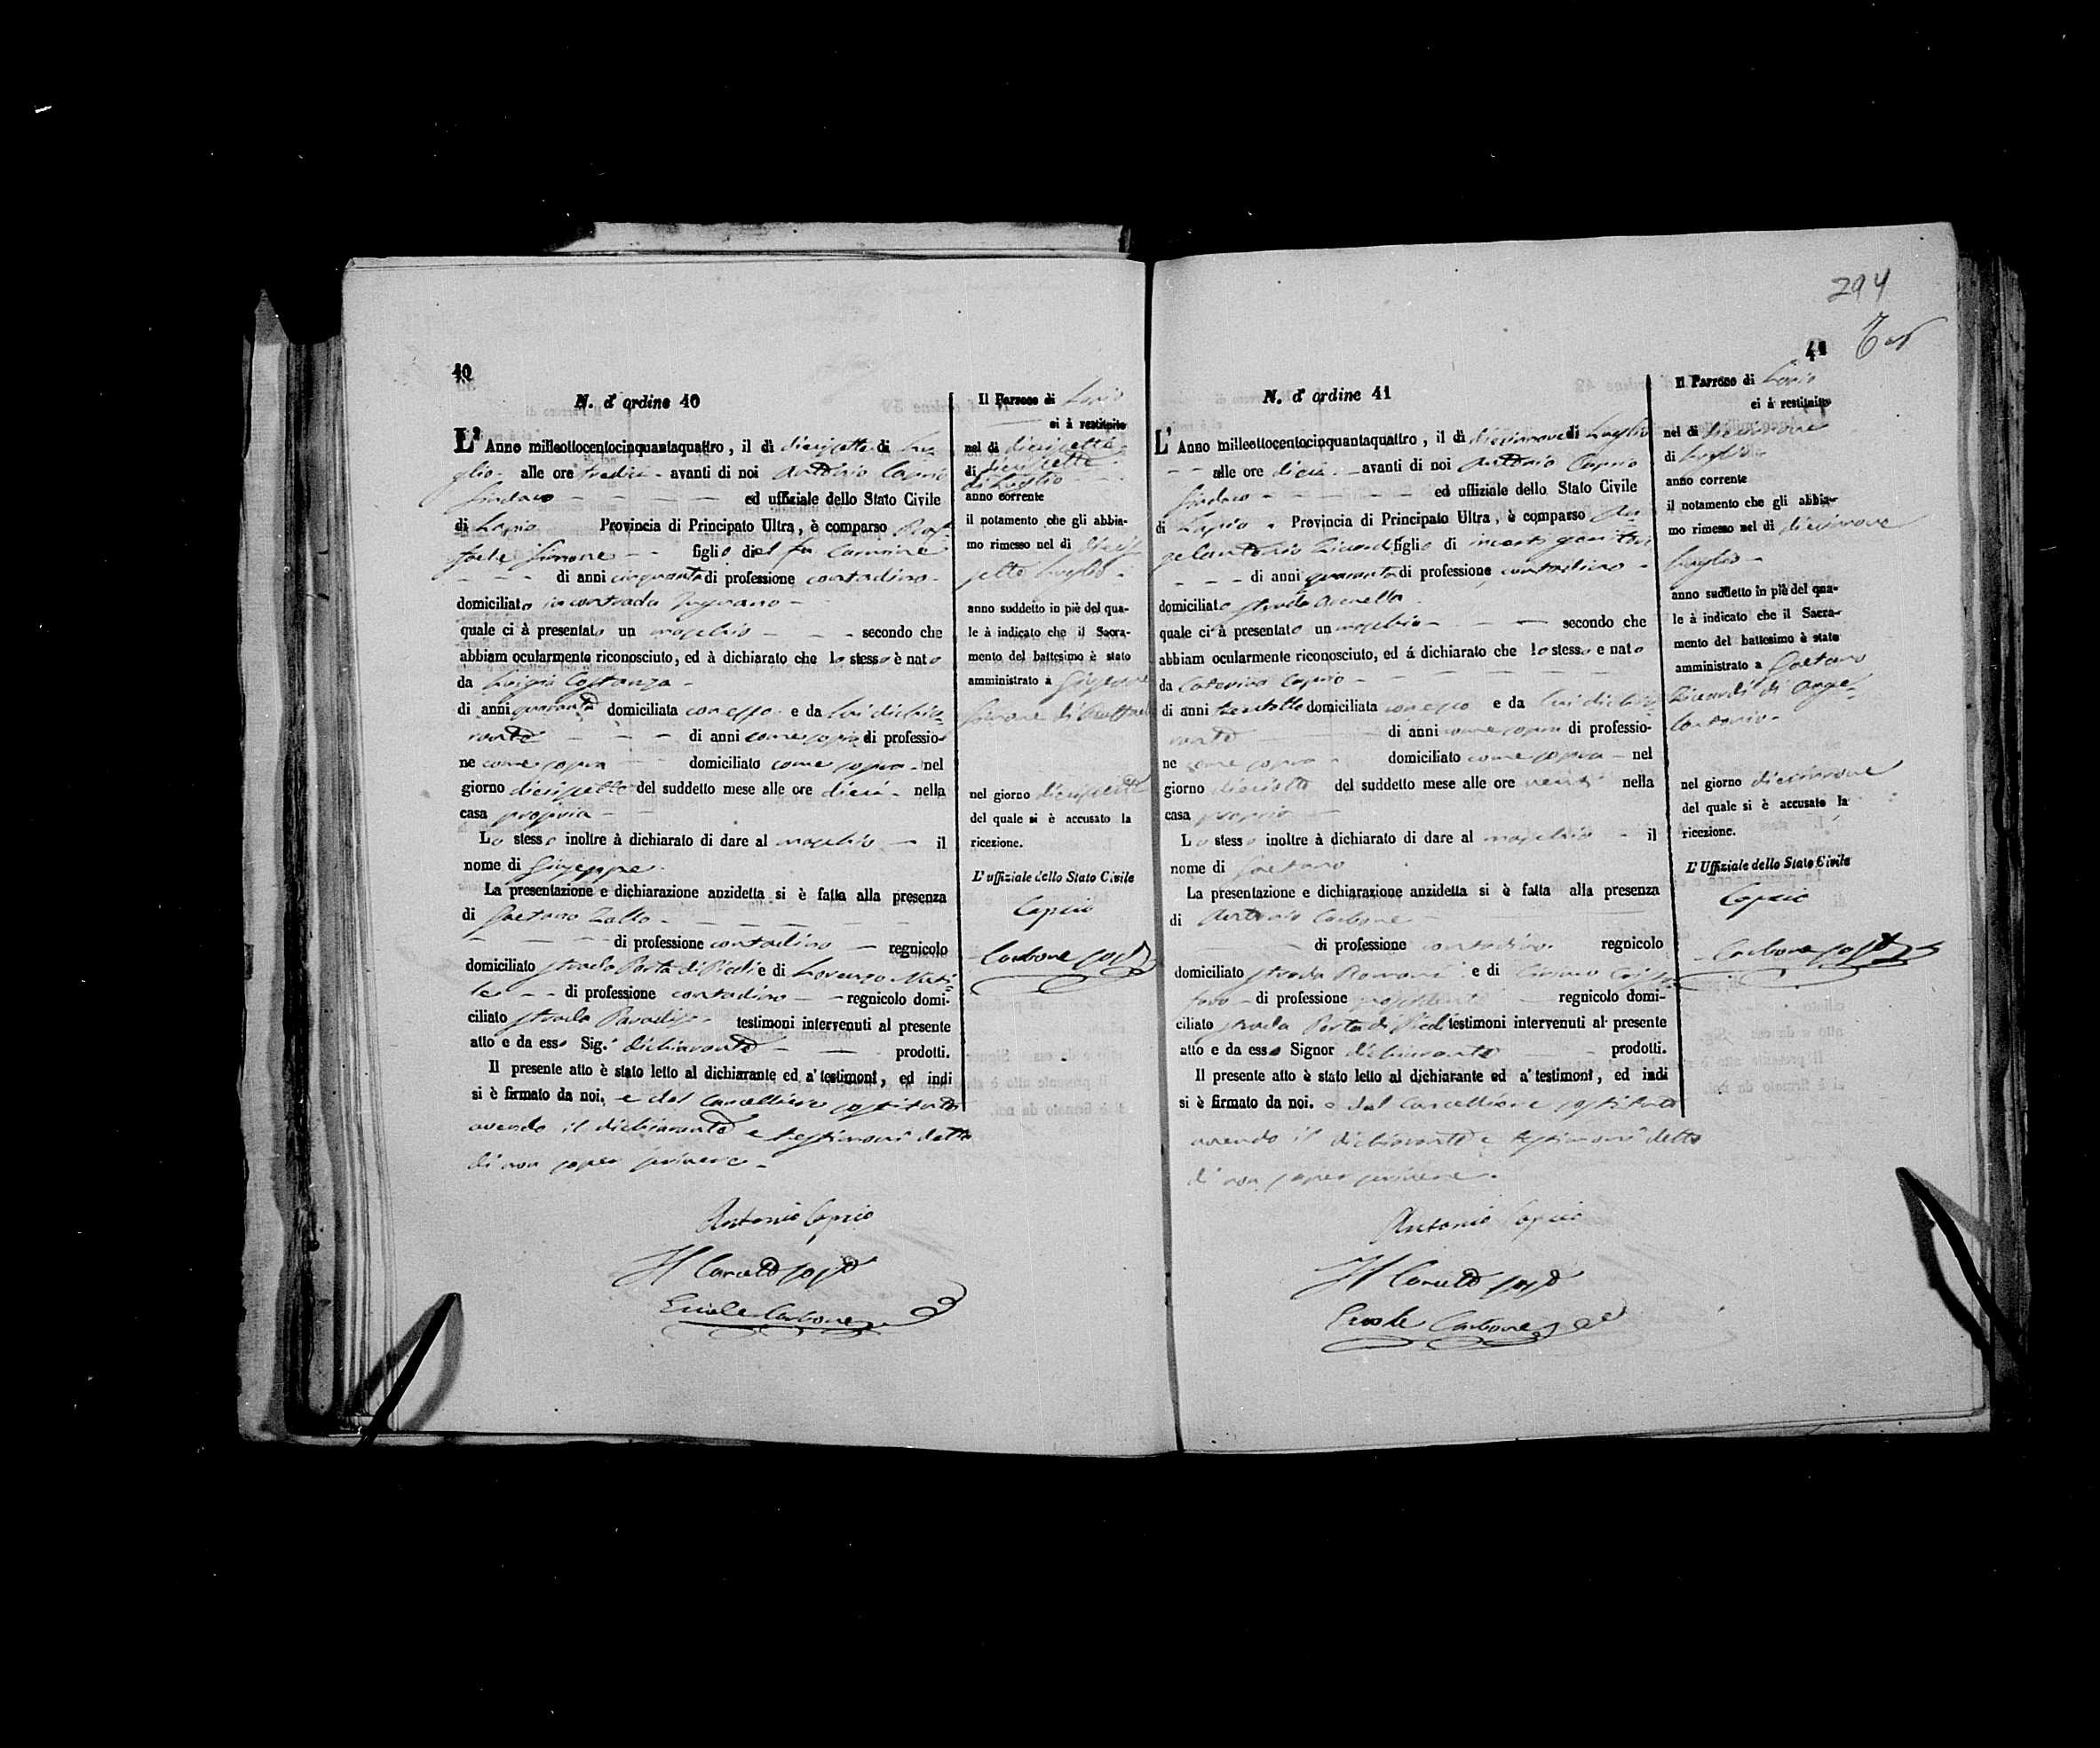 40
N. d' ordine 40
L' Anno milleottocentocinquantaquattro, il di diecisette di Lu-
glio - alle ore tredici - avanti di noi Antonio Caprio
Sindaco - ed uffiziale dello Stato Civile
di Lapio Provincia di Principato Ultra, è comparso Raf-
faele Simone - figlio del fu Carmine
- di anni cinquanta di professione contadino -
domiciliato in contrada
quale ci à presentato un maschio - secondo che
abbiam ocularmente riconosciuto, ed à dichiarato che lo stesso è nato
da Luigia Costanza -
di anni quaranta domiciliata con esso - e da lui dichia-
rante - di anni come sopra di professio-
ne come sopra domiciliato come sopra - nel
giorno diecisette del suddetto mese alle ore dieci - nella
casa propria -
Lo stesso inoltre à dichiarato di dare al maschio - il
nome di Giuseppe
La presentazione e dichiarazione anzidetta si è fatta alla presenza
di Gaetano Zollo -
- di professione contadino - regnicolo
domiciliato strada Porta di Piedi e di Lorenzo
- di professione contadino - regnicolo domi-
ciliato strada Paradiso - testimoni intervenuti al presente
atto e da esso Sig.r dichiarante - prodotti.
Il presente atto è stato letto al dichiarante ed a' testimoni, ed indi
si è firmato da noi, e dal Cancelliere sostituto
avendo il dichiarante e testimoni detto
di non saper scrivere -
Antonio Caprio
Il Cancell.e sost.o
Ercole Carbone
Il Parroco di Lapio
ci à restituito
nel di diecisette
di diecisette
di Luglio -
anno corrente
il notamento che gli abbia-
mo rimesso nel di dieci
sette Luglio -
anno suddetto in piè del qua-
le à indicato che il Sacra-
mento del battesimo è stato
amministrato a Giuseppe
Simone di Raffaele
nel giorno diecisette
del quale si è accusato la
ricezione.
L' uffiziale dello Stato Civile
Caprio
Carbone sost.o
294
41
N. d' ordine 41
L' Anno milleottocentocinquantaquattro, il di diecinnove di Luglio
- alle ore dieci - avanti di noi Antonio Caprio
Sindaco - ed uffiziale dello Stato Civile
di Lapio - Provincia di Principato Ultra, è comparso An-
gelantonio Ricardi figlio di incerti genitori
- di anni quaranta di professione contadino -
domiciliato strada
quale ci à presentato un maschio - secondo che
abbiam ocularmente riconosciuto, ed á dichiarato che lo stesso e nato
da Caterina Caprio -
di anni trentotto domiciliata con esso e da lui dichia-
rante - di anni come sopra di professio-
ne come sopra - domiciliato come sopra - nel
giorno dieciotto del suddetto mese alle ore venti nella
casa propria -
Lo stesso inoltre à dichiarato di dare al maschio - il
nome di Gaetano
La presentazione e dichiarazione anzidetta si è fatta alla presenza
di Antonio Carbone -
- di professione contadino - regnicolo
domiciliato strada e di
- di professione regnicolo domi-
ciliato strada Porta di Piedi testimoni intervenuti al presente
atto e da esso Signor dichiarante - prodotti.
Il presente atto è stato letto al dichiarante ed a' testimoni, ed indi
si è firmato da noi. e dal Cancelliere sostituto
avendo il dichiarante e testimoni detto
di non saper scrivere.
Antonio Caprio
Il Cancell.e sost.o
Ercole Carbone
Il Parroco di Lapio
ci à restituito
nel di diecinnove
di Luglio
anno corrente
il notamento che gli abbia-
mo rimesso nel di diecinnove
Luglio -
anno suddetto in piè del qua-
le à indicato che il Sacra-
mento del battesimo è stato
amministrato a Gaetano
Ricardi di Ange-
lantonio -
nel giorno diecinnove
del quale si è accusato la
ricezione.
L' Uffiziale dello Stato Civile
Caprio
Carbone sost.o